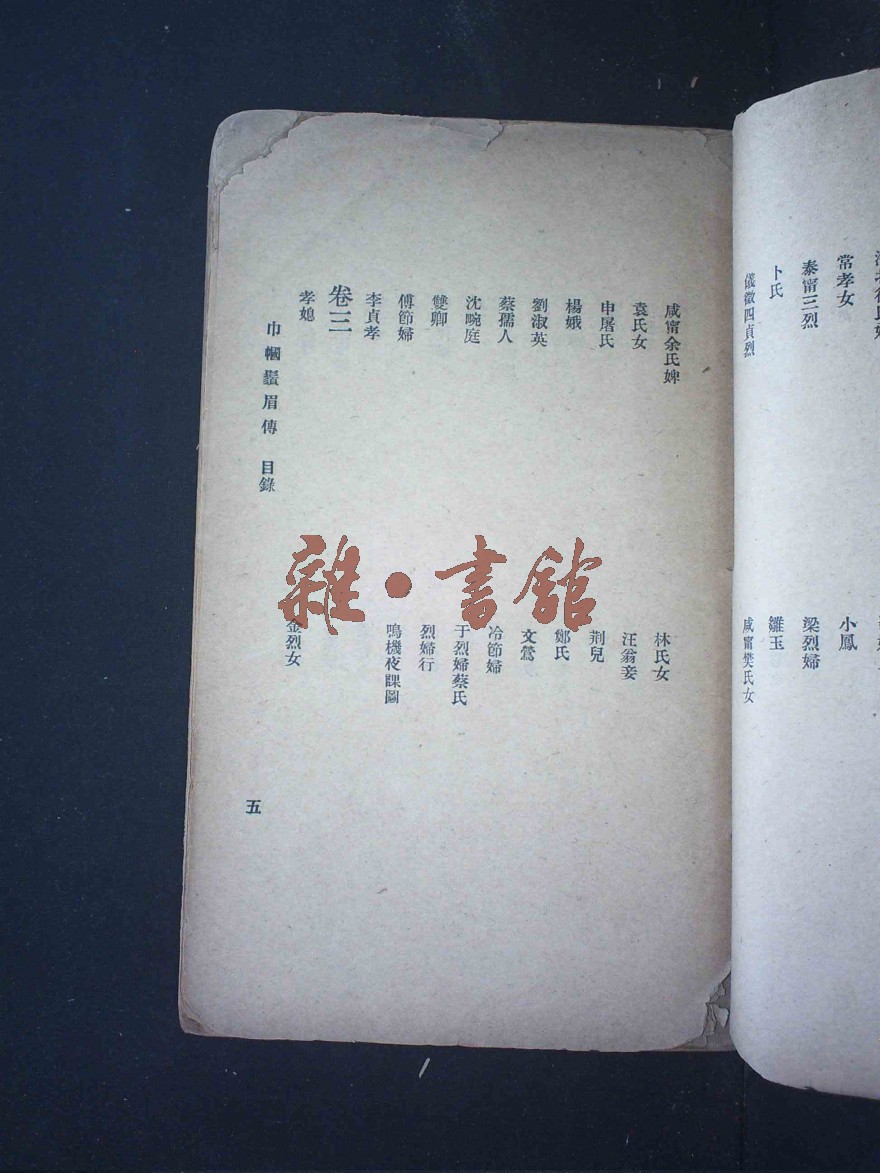 常孝女 小鳳
泰甯三烈 梁烈婦
卜氏 雛玉
儀徵四貞烈 咸甯樊氏女
咸甯余氏婢 林氏女
袁氏女 汪翁妾
申屠氏 荆兒
楊娥 鄭氏
劉淑英 文鶯
蔡孺人 冷節婦
沈畹庭 于烈婦蔡氏
雙卿 烈婦行
傅節婦 鳴機夜課圖
李貞孝
卷三
孝媳 金烈女
巾幗鬚眉傳 目錄 五
雜·書館